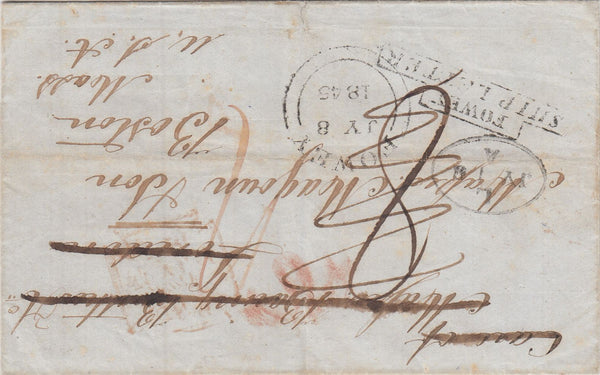 Care of
Messrs Baring Brothers & Co
London
Messrs Magoun & Son
Boston
Mass.
U. S. A.
8
FOWEY
JY 8
1845
FOWEY
SHIP LETTER
A